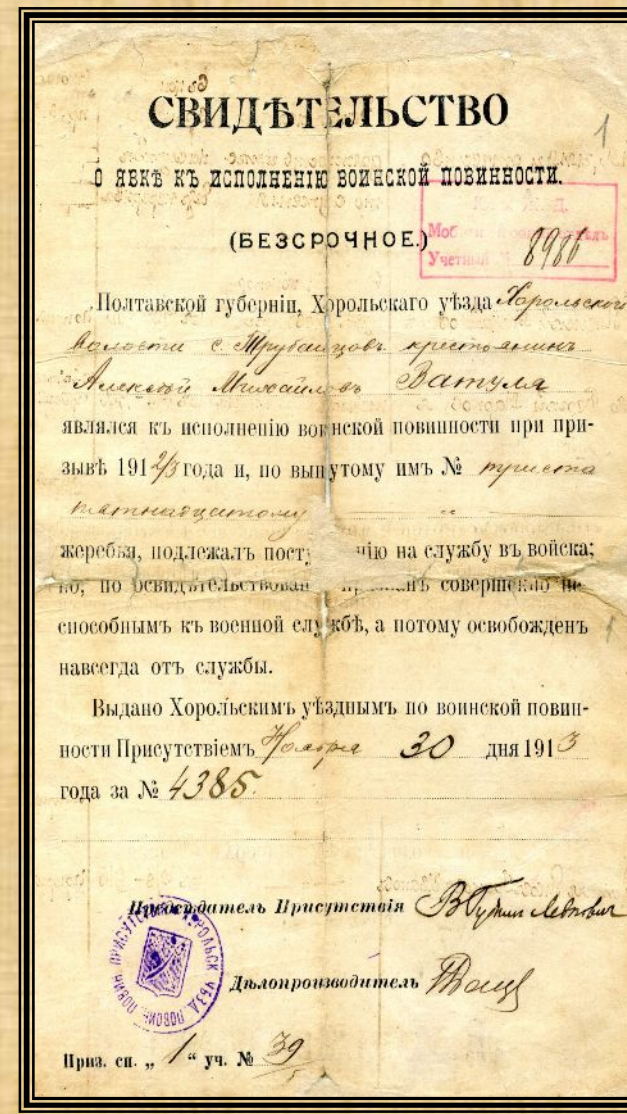 СВИДѢТЕЛЬСТВО
1
О ЯВКѢ КЪ ИСПОЛНЕНІЮ ВОИНСКОЙ ПОВИННОСТИ.
(БЕЗСРОЧНОЕ.)
Учетный № 8986
Полтавской губерніи, Хорольскаго уѣзда Хорольской
волости с. Трубайцовъ крестьянинъ
Алексѣй Михайловъ Ватуля
являлся къ исполненію воинской повинности при при-
зывѣ 1912/3 года и, по вынутому имъ № триста
пятнадцатому
жеребья, подлежалъ пост нію на службу въ войска;
но, по освидѣтельствован признанъ совершенно не-
способнымъ къ военной службѣ, а потому освобожденъ
навсегда отъ службы.
Выдано Хорольскимъ уѣзднымъ по воинской повин-
ности Присутствіемъ Ноября 30 дня 1913
года за № 4385.
Предсѣдатель Присутствія
Дѣлопроизводитель
Приз. сп. „ 1 “ уч. № 39